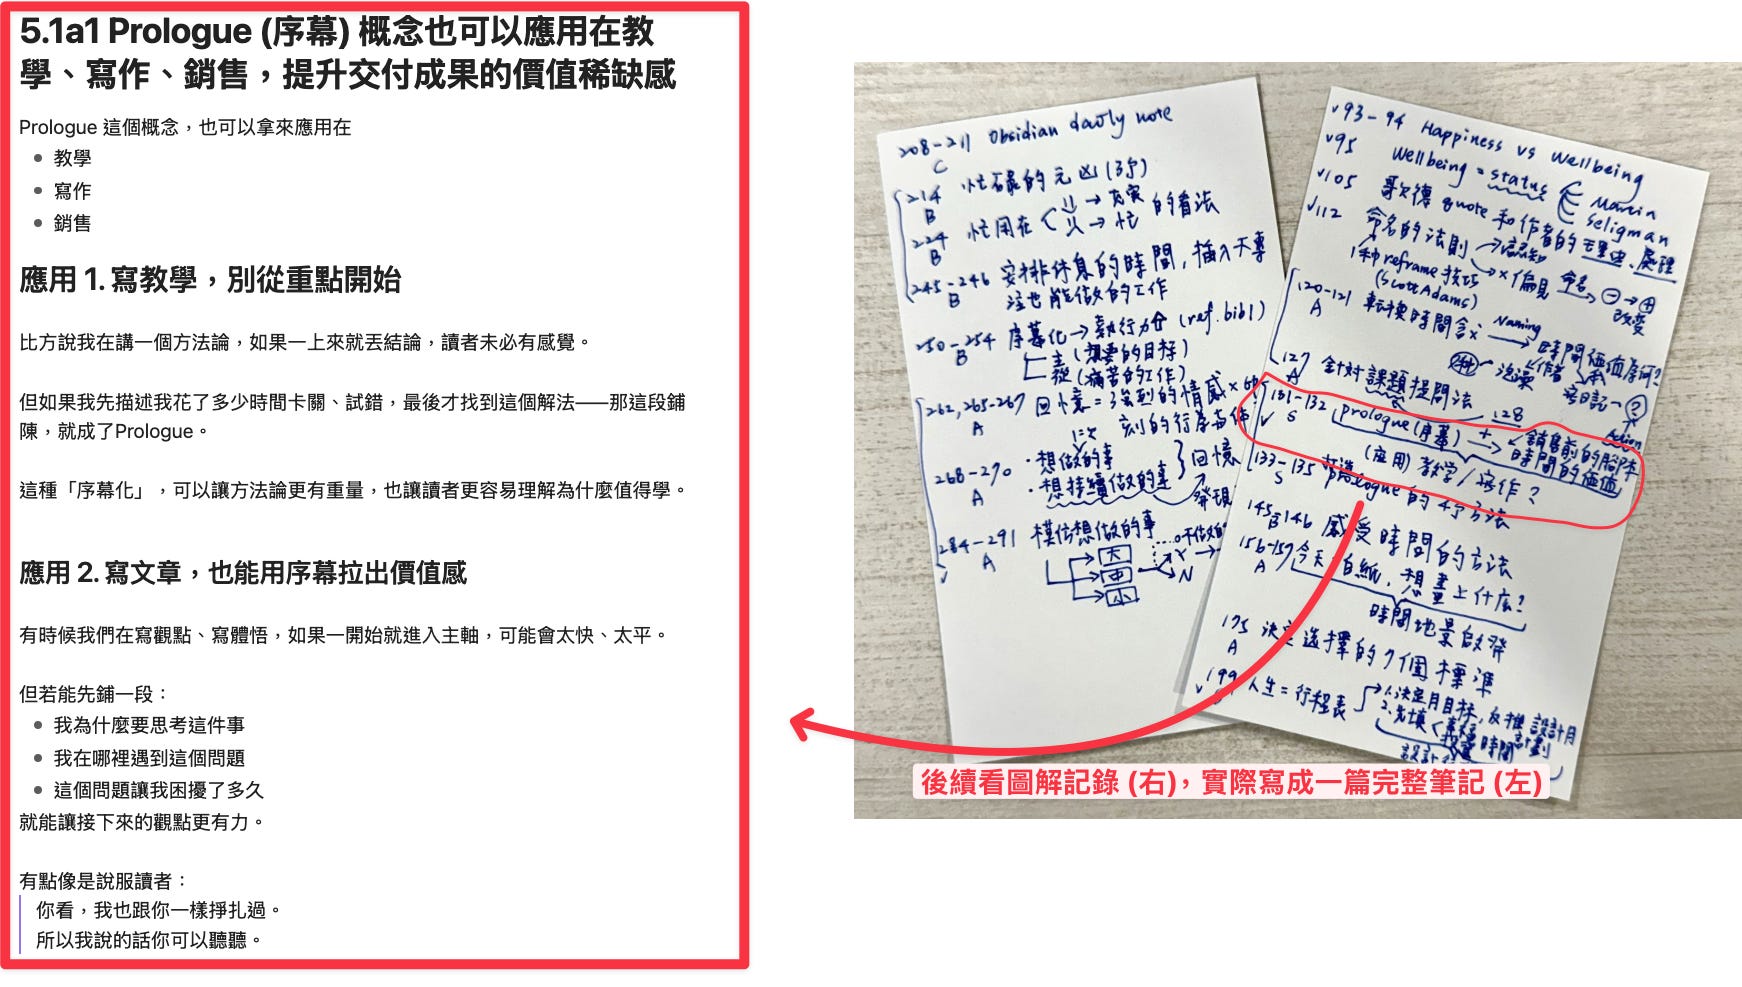 5.1a1 Prologue (序幕) 概念也可以應用在教
學、寫作、銷售，提升交付成果的價值稀缺感
Prologue 這個概念，也可以拿來應用在
教學
寫作
銷售
應用 1. 寫教學，別從重點開始
比方說我在講一個方法論，如果一上來就丟結論，讀者未必有感覺。
但如果我先描述我花了多少時間卡關、試錯，最後才找到這個解法——那這段鋪
陳，就成了Prologue。
這種「序幕化」，可以讓方法論更有重量，也讓讀者更容易理解為什麼值得學。
應用 2. 寫文章，也能用序幕拉出價值感
有時候我們在寫觀點、寫體悟，如果一開始就進入主軸，可能會太快、太平。
但若能先鋪一段：
我為什麼要思考這件事
我在哪裡遇到這個問題
這個問題讓我困擾了多久
就能讓接下來的觀點更有力。
有點像是說服讀者：
你看，我也跟你一樣掙扎過。
所以我說的話你可以聽聽。
208-211 Obsidian daily note
C
214 忙碌的元凶(3個)
B
224 忙用在 → 充實 → 忙 的看法
B
245-246 安排休息的時間，插入不專
B 注也能做的工作
250-254 序幕化→執行力 (ref. bib1)
B 主(想要的目標)
從(痛苦的工作)
262, 265-267 回憶=強烈的情感×
A 刻的行為
268-270 ·想做的事
A ·想持續做的事 回憶
發現
284-291 模仿想做的事
A 大 中 小 Y N
93-94 Happiness vs Wellbeing
95 Wellbeing = status Marcin Seligman
105 歌德 quote 和作者的 處理
112 命名的法則 → 認知 × 偏見
1種 reframe 技巧 命名 ⊖→⊕ 改變
(Scott Adams)
120-121 轉換時間含 Naming 時間價值
A
127 針對課題提問法
A
131-132 prologue(序幕) + 128 銷售前的
S 時間的價值
(應用) 教學/寫作?
133-135 打造 prologue 的 4個方法
S
145-146 感受時間的方法
B
156-157 今天=白紙，想畫上什麼?
A 時間地景啟發
175 決定選擇的7個標準
A
199 人生=行程表 1. 決定月目標,
2. 先填
後續看圖解記錄 (右)，實際寫成一篇完整筆記 (左)